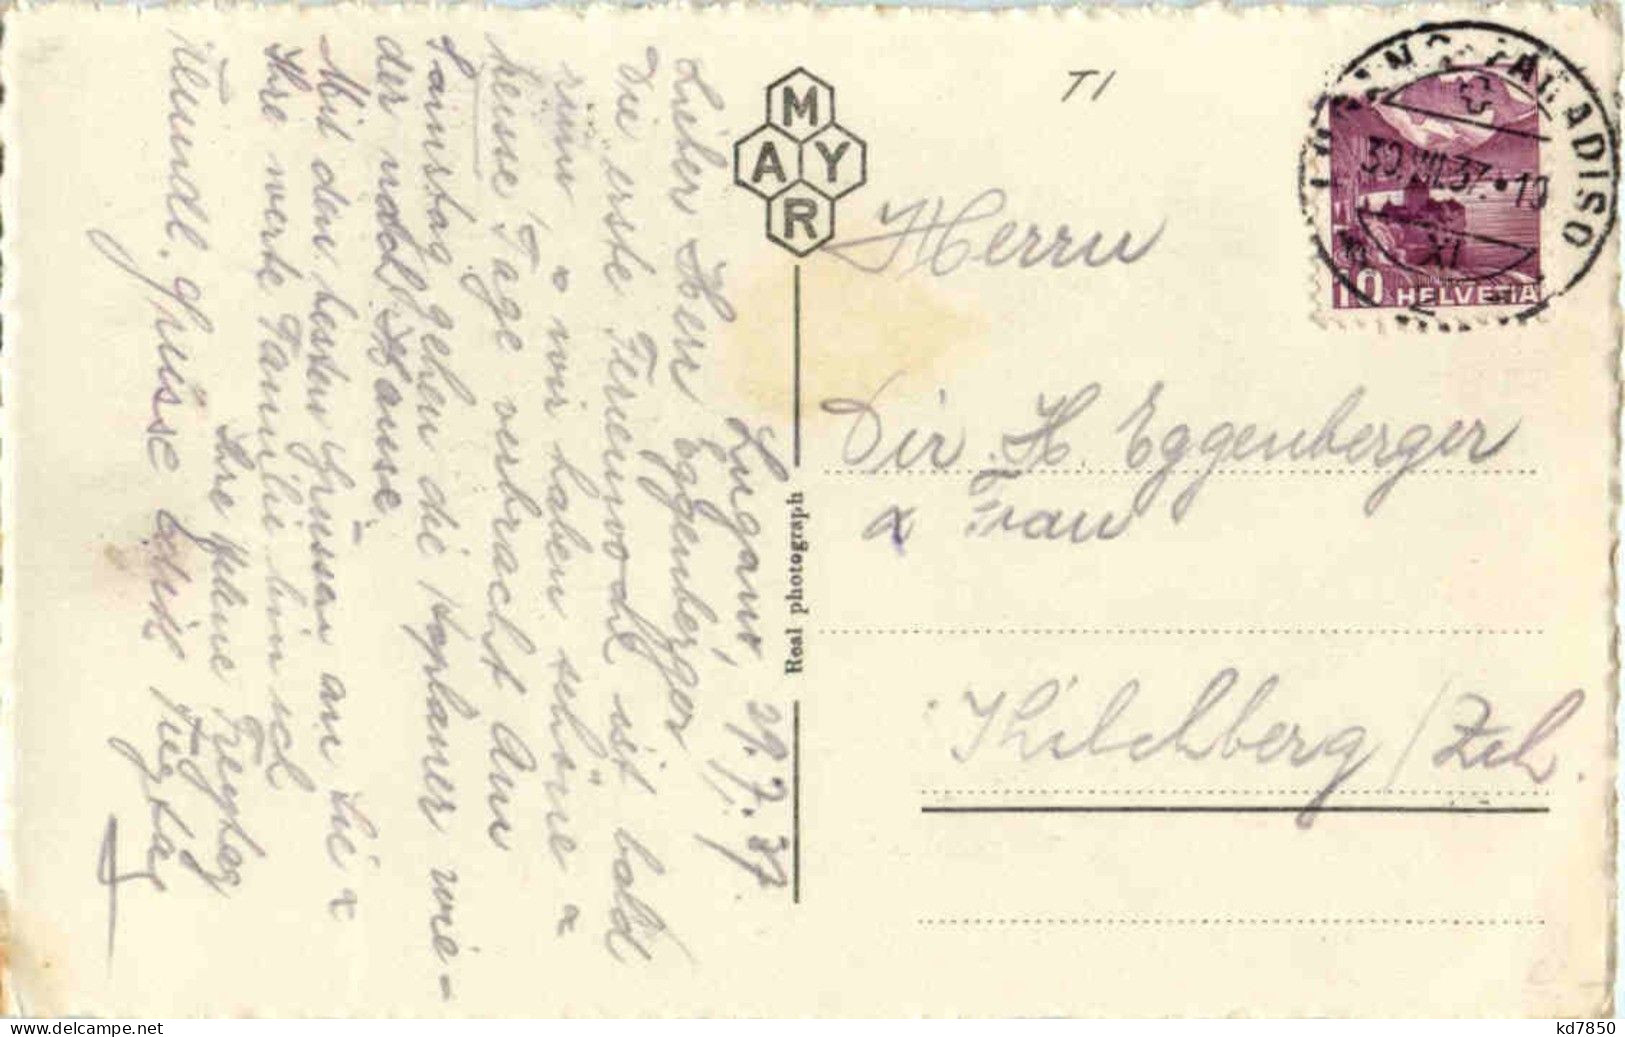 Lugano, 29.7.37
Lieber Herr Eggenberger
Die erste Ferienwoche ist bald
rum & wir haben schöne &
heisse Tage verbracht. Am
Samstag gehen die wie-
der nach Hause.
Mit den besten Grüssen an Sie &
Ihre werte Familie bin ich
Ihre Freytag
Freundl. Grüsse Freytag
MAYR
Real photograph
T1
LUGANO-PARADISO
30.VII.37.
XI
10
HELVETIA
Herrn
Dir. H. Eggenberger
& Frau
Kilchberg / Zch.
delcampe.net
kd7850